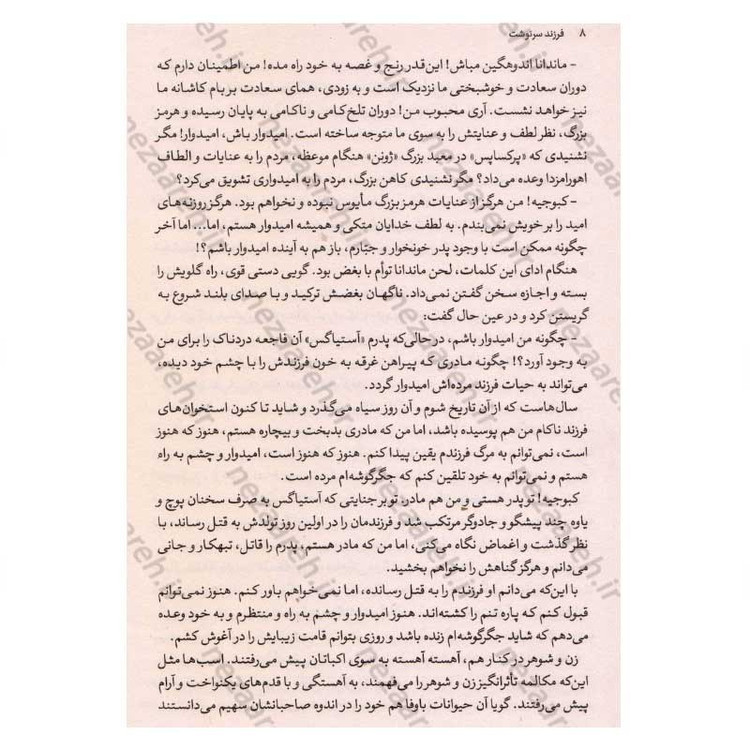 ۸ فرزند سرنوشت
- ماندانا اندوهگین مباش! این‌قدر رنج و غصه به خود راه مده! من اطمینان دارم که
دوران سعادت و خوشبختی ما نزدیک است و به زودی، همای سعادت بر بام کاشانه ما
نیز خواهد نشست. آری محبوب من! دوران تلخ‌کامی و ناکامی به پایان رسیده و هرمز
بزرگ، نظر لطف و عنایتش را به سوی ما متوجه ساخته است. امیدوار باش، امیدوار! مگر
نشنیدی که «پرکساپس» در معبد بزرگ «ژونن» هنگام موعظه، مردم را به عنایات و الطاف
اهورامزدا وعده می‌داد؟ مگر نشنیدی کاهن بزرگ، مردم را به امیدواری تشویق می‌کرد؟
- کبوجیه! من هرگز از عنایات هرمز بزرگ مأیوس نبوده و نخواهم بود. هرگز روزنه‌های
امید را بر خویش نمی‌بندم. به لطف خدایان متکی و همیشه امیدوار هستم، اما... اما آخر
چگونه ممکن است با وجود پدر خونخوار و جبّارم، باز هم به آینده امیدوار باشم؟!
هنگام ادای این کلمات، لحن ماندانا توأم با بغض بود. گویی دستی قوی، راه گلویش را
بسته و اجازه سخن گفتن نمی‌داد. ناگهان بغضش ترکید و با صدای بلند شروع به
گریستن کرد و در عین حال گفت:
- چگونه من امیدوار باشم، در حالی‌که پدرم «آستیاگس» آن فاجعه دردناک را برای من
به وجود آورد؟! چگونه مادری که پیراهن غرقه به خون فرزندش را با چشم خود دیده،
می‌تواند به حیات فرزند مرده‌اش امیدوار گردد.
سال‌هاست که از آن تاریخ شوم و آن روز سیاه می‌گذرد و شاید تا کنون استخوان‌های
فرزند ناکام من هم پوسیده باشد، اما من که مادری بدبخت و بیچاره هستم، هنوز که هنوز
است، نمی‌توانم به مرگ فرزندم یقین پیدا کنم. هنوز که هنوز است، امیدوار و چشم به راه
هستم و نمی‌توانم به خود تلقین کنم که جگرگوشه‌ام مرده است.
کبوجیه! تو پدر هستی و من هم مادر. تو بر جنایتی که آستیاگس به صرف سخنان پوچ و
یاوه چند پیشگو و جادوگر مرتکب شد و فرزندمان را در اولین روز تولدش به قتل رساند، با
نظر گذشت و اغماض نگاه می‌کنی، اما من که مادر هستم، پدرم را قاتل، تبهکار و جانی
می‌دانم و هرگز گناهش را نخواهم بخشید.
با این‌که می‌دانم او فرزندم را به قتل رسانده، اما نمی‌خواهم باور کنم. هنوز نمی‌توانم
قبول کنم که پاره تنم را کشته‌اند. هنوز امیدوار و چشم به راه و منتظرم و به خود وعده
می‌دهم که شاید جگرگوشه‌ام زنده باشد و روزی بتوانم قامت زیبایش را در آغوش کشم.
زن و شوهر در کنار هم، آهسته آهسته به سوی اکباتان پیش می‌رفتند. اسب‌ها مثل
این‌که مکالمه تأثرانگیز زن و شوهر را می‌فهمند، به آهستگی و با قدم‌های یکنواخت و آرام
پیش می‌رفتند. گویا آن حیوانات باوفا هم خود را در اندوه صاحبانشان سهیم می‌دانستند
nezaareh.ir